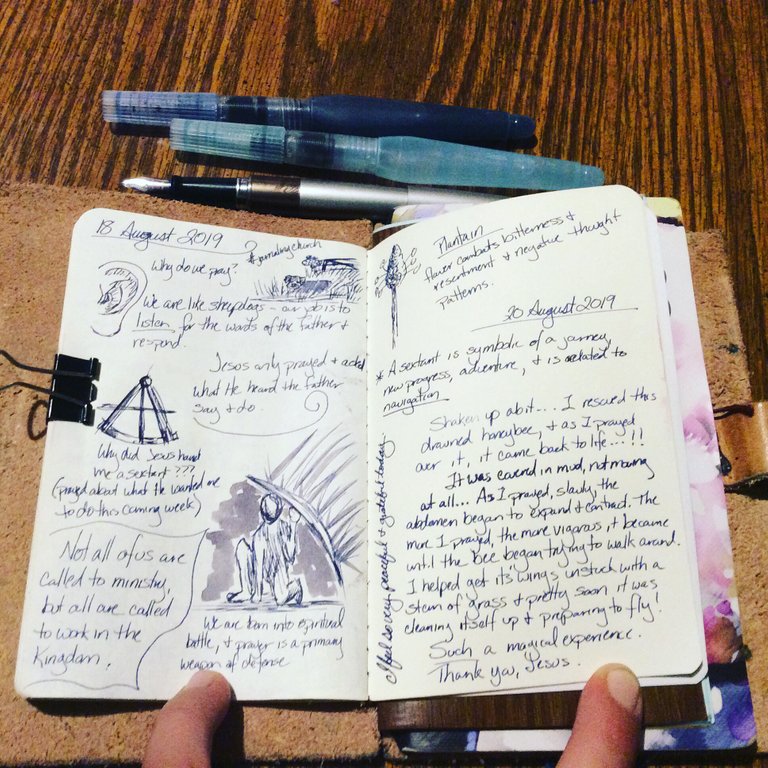 18 August 2019
#journalingchurch
Why do we pray?
We are like sheepdogs - our job is to
listen for the words of the father &
respond.
Jesus only prayed & acted
what He heard the father
say & do.
Why did Jesus hand
me a sextant???
(prayed about what He wanted me
to do this coming week)
Not all of us are
called to ministry,
but all are called
to work in the
Kingdom.
We are born into spiritual
battle, & prayer is a primary
weapon of defense
Plantain
flower combats bitterness &
resentment & negative thought
patterns.
20 August 2019
* A sextant is symbolic of a journey,
new progress, adventure, & is related to
navigation.
Shaken up a bit... I rescued this
drowned honeybee, & as I prayed
over it, it came back to life...!!
It was covered in mud, not moving
at all... As I prayed, slowly, the
abdomen began to expand & contract. The
more I prayed, the more vigorous it became
until the bee began trying to walk around.
I helped get it's wings unstuck with a
stem of grass & pretty soon, it was
cleaning itself up & preparing to fly!
Such a magical experience.
Thank you, Jesus.
I feel so very peaceful & grateful today